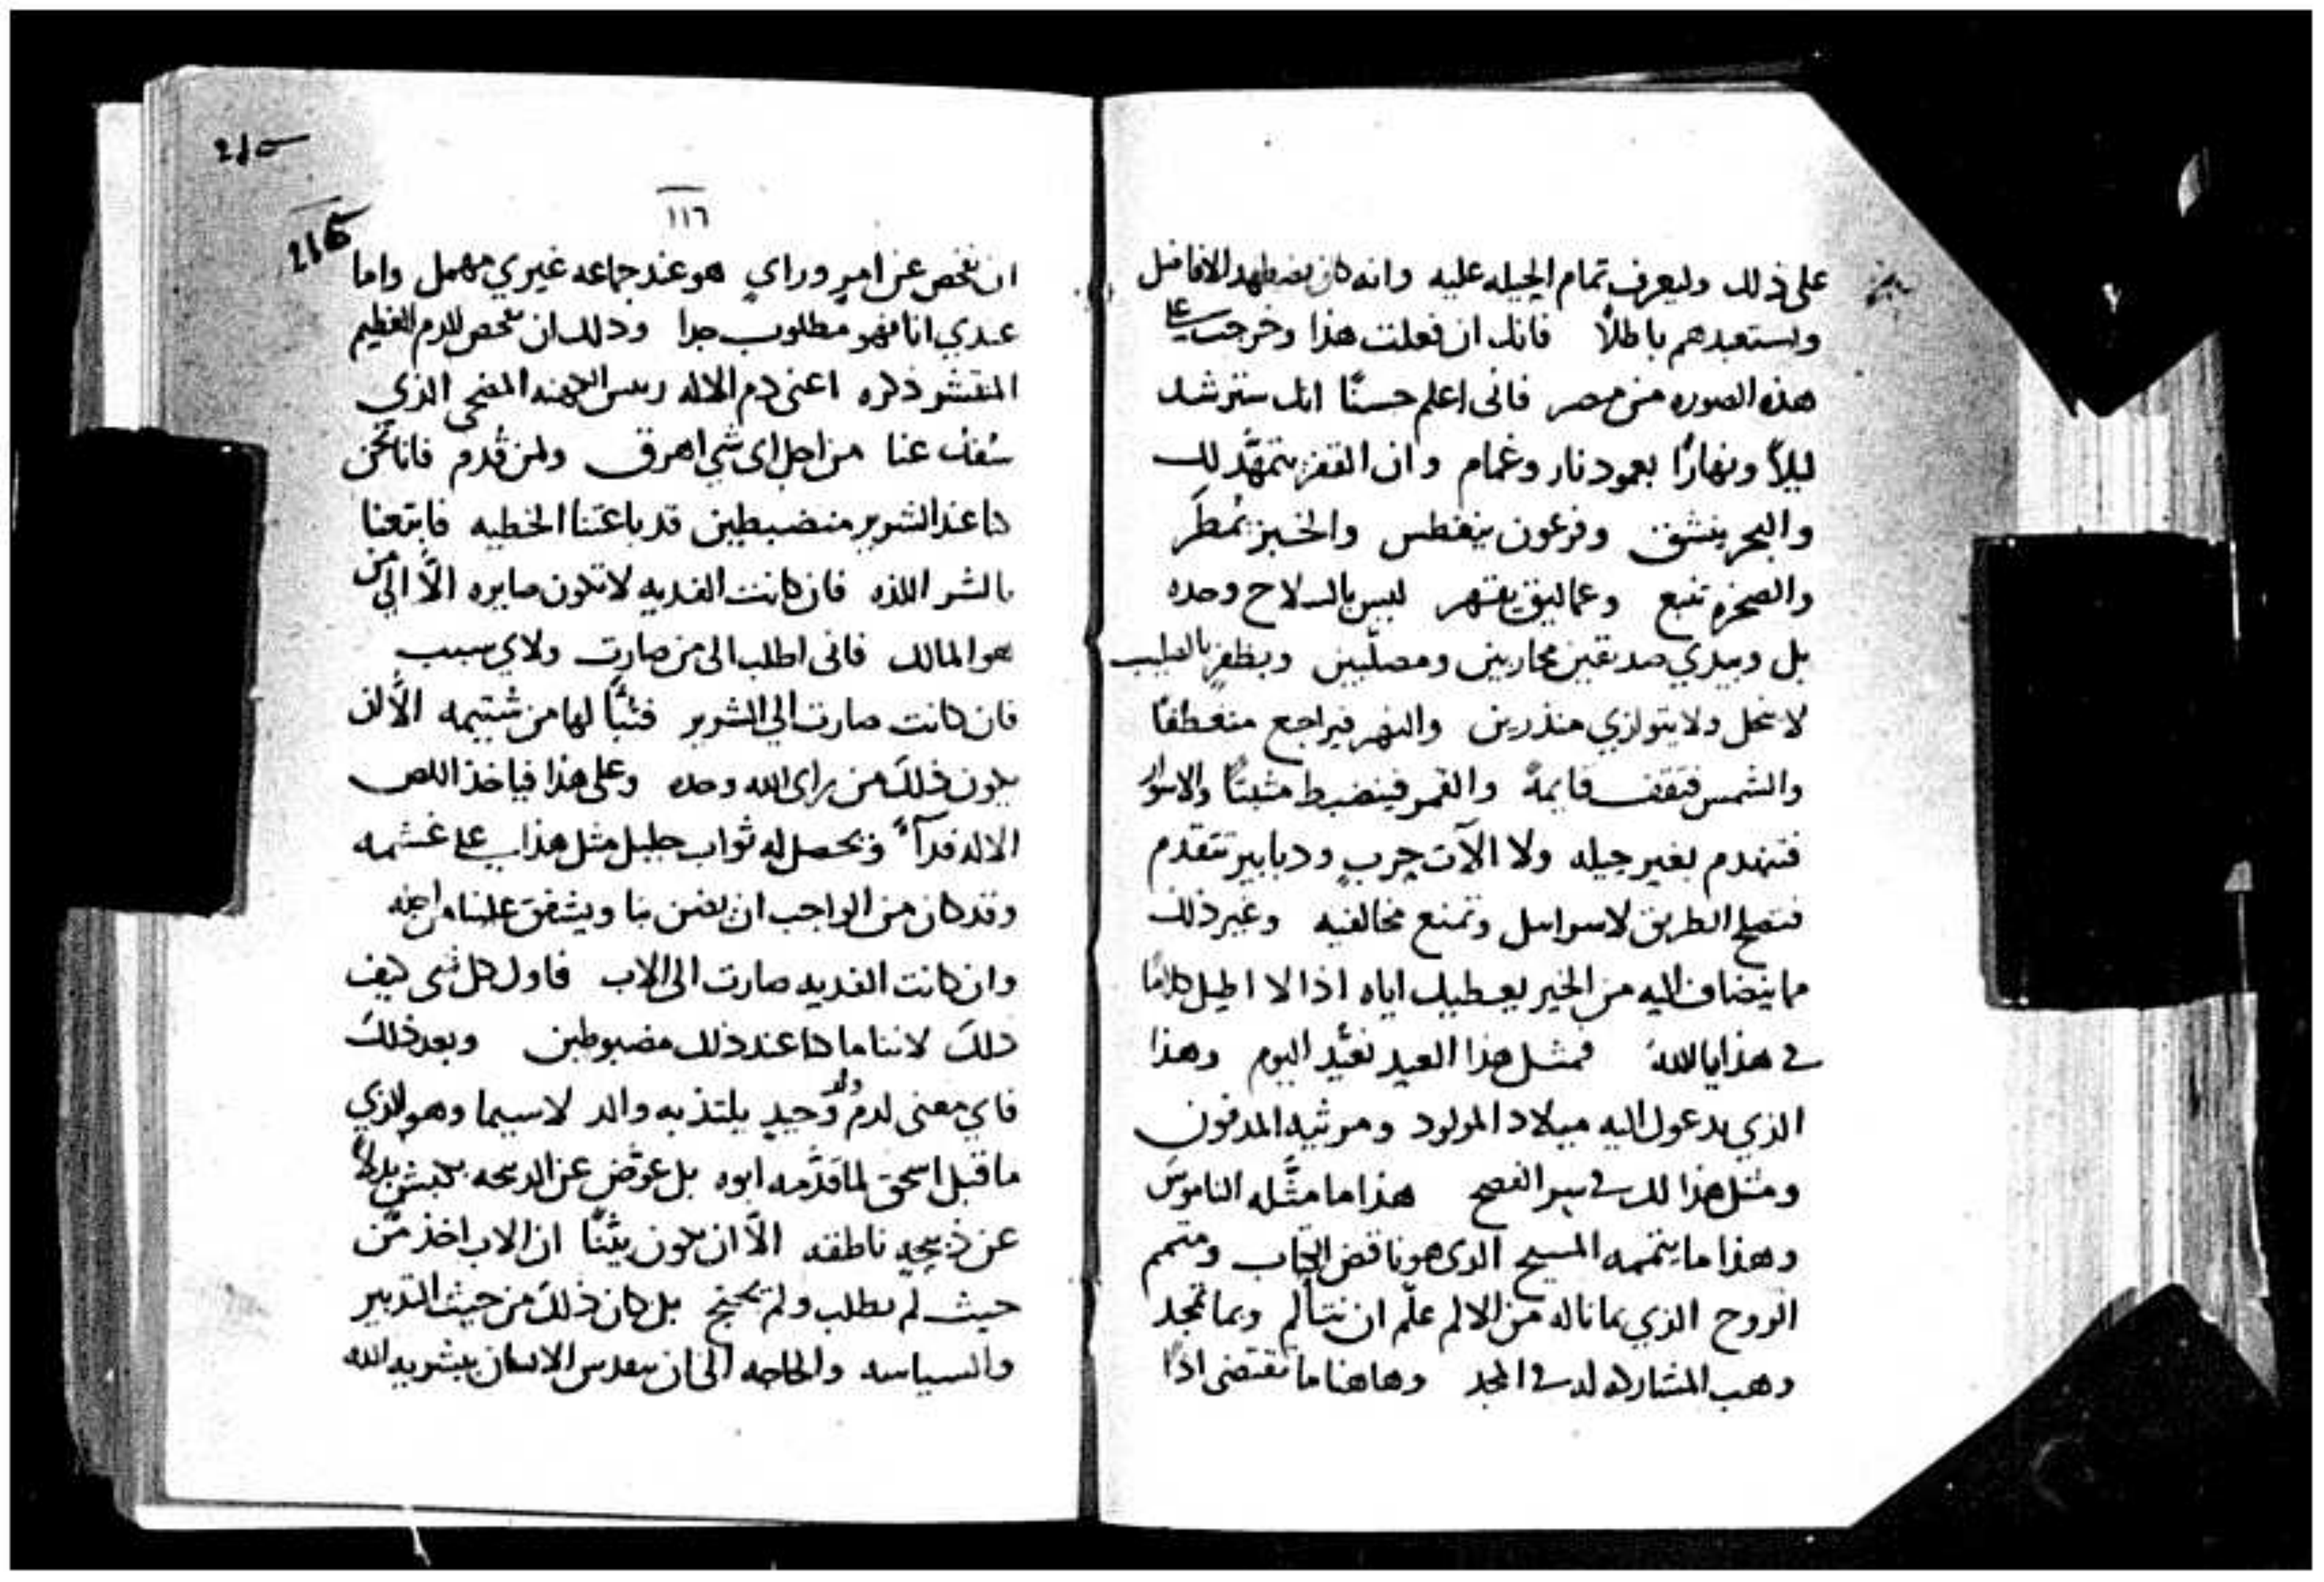 على ذلك وليعرف تمام الحيله عليه وانه كان يضطهد الافاضل
ويستعبدهم باطلاً فانك ان فعلت هذا وخرجت على
هذه الصوره من مصر فانى اعلم حسنًا انك سترشد
ليلاً ونهارًا بعمود نار وغمام وان القفر يتمهّد لك
والبحر ينشق وفرعون ينغطس والخبز يُمطَر
والصخره تنبع وعماليق يقهر ليس بالسلاح وحده
بل وبيدي صديقين محاربين ومصلّبين ويظفر بالصليب
لا نحل ولا يتوازي منذرين والنهر فيراجع منعطفًا
والشمس فتقف قايمةً والقمر فينضبط مثبتًا والاسوار
فتنهدم بغير حيله ولا الآت حربٍ ودبابير تتقدم
فتصلح الطريق لاسراييل وتمنع مخالفيه وغير ذلك
مما ينضاف اليه من الخير يعطيك اياه اذا لا اطيل كلامًا
في هذا يا الله فمثل هذا العيد نعيّد اليوم وهذا
الذي يدعوك اليه ميلاد المولود ومرثية المدفون
ومثل هذا لك في سر الفصح هذا ما مثّله الناموس
وهذا ما يتممه المسيح الذى هو ناقض الكتاب ومتمم
الروح الذي بما ناله من الالم علّم ان نتألم وبما تمجد
وهب المشاركه له في المجد وهاهنا ما تقتضى اذًا
١١٦
216
ان نفحص عن امرٍ وراي هو عند جماعه غيري مهمل واما
عندي انا فهو مطلوب جدا وذلك ان نفحص الدم العظيم
المنتشر ذكره اعنى دم الاله رييس الكهنه المضحى الذي
سُفك عنا من اجل اى شي اهرق ولمن قُدم فاننا نحن
كنا عند الشرير منضبطين قد باعتنا الخطيه فابتعنا
بالشر اللذه فان كانت الفديه لا تكون صايره الّا الي من
هو المالك فانى اطلب الى من صارت ولاي سبب
فان كانت صارت الي الشرير فتبًّا لها من شتيمه الّا ان
يكون ذلك من راى الله وحده وعلى هذا فياخذ اللص
الاله فدآءً ويحصل له ثواب جليل مثل هذا على غشمه
وقد كان من الواجب ان يضن بنا ويشفق علينا من اجله
وان كانت الفديه صارت الى الاب فاول كل شى كيف
ذلك لاننا ما كنا عند ذلك مضبوطين وبعد ذلك
فاي معنى لدم ولد وحيدٍ يلتذ به والد لا سيما وهو الذي
ما قبل اسحق لما قدّمه ابوه بل عوّض عن الذبيحه بكبش بدلاً
عن ذبيحةٍ ناطقه الّا ان يكون بيّنًا ان الاب اخذ من
حيث لم يطلب ولم يحتج بل كان ذلك من حيث التدبير
والسياسه والحاجه الى ان يتقدس الانسان ببشرية الله